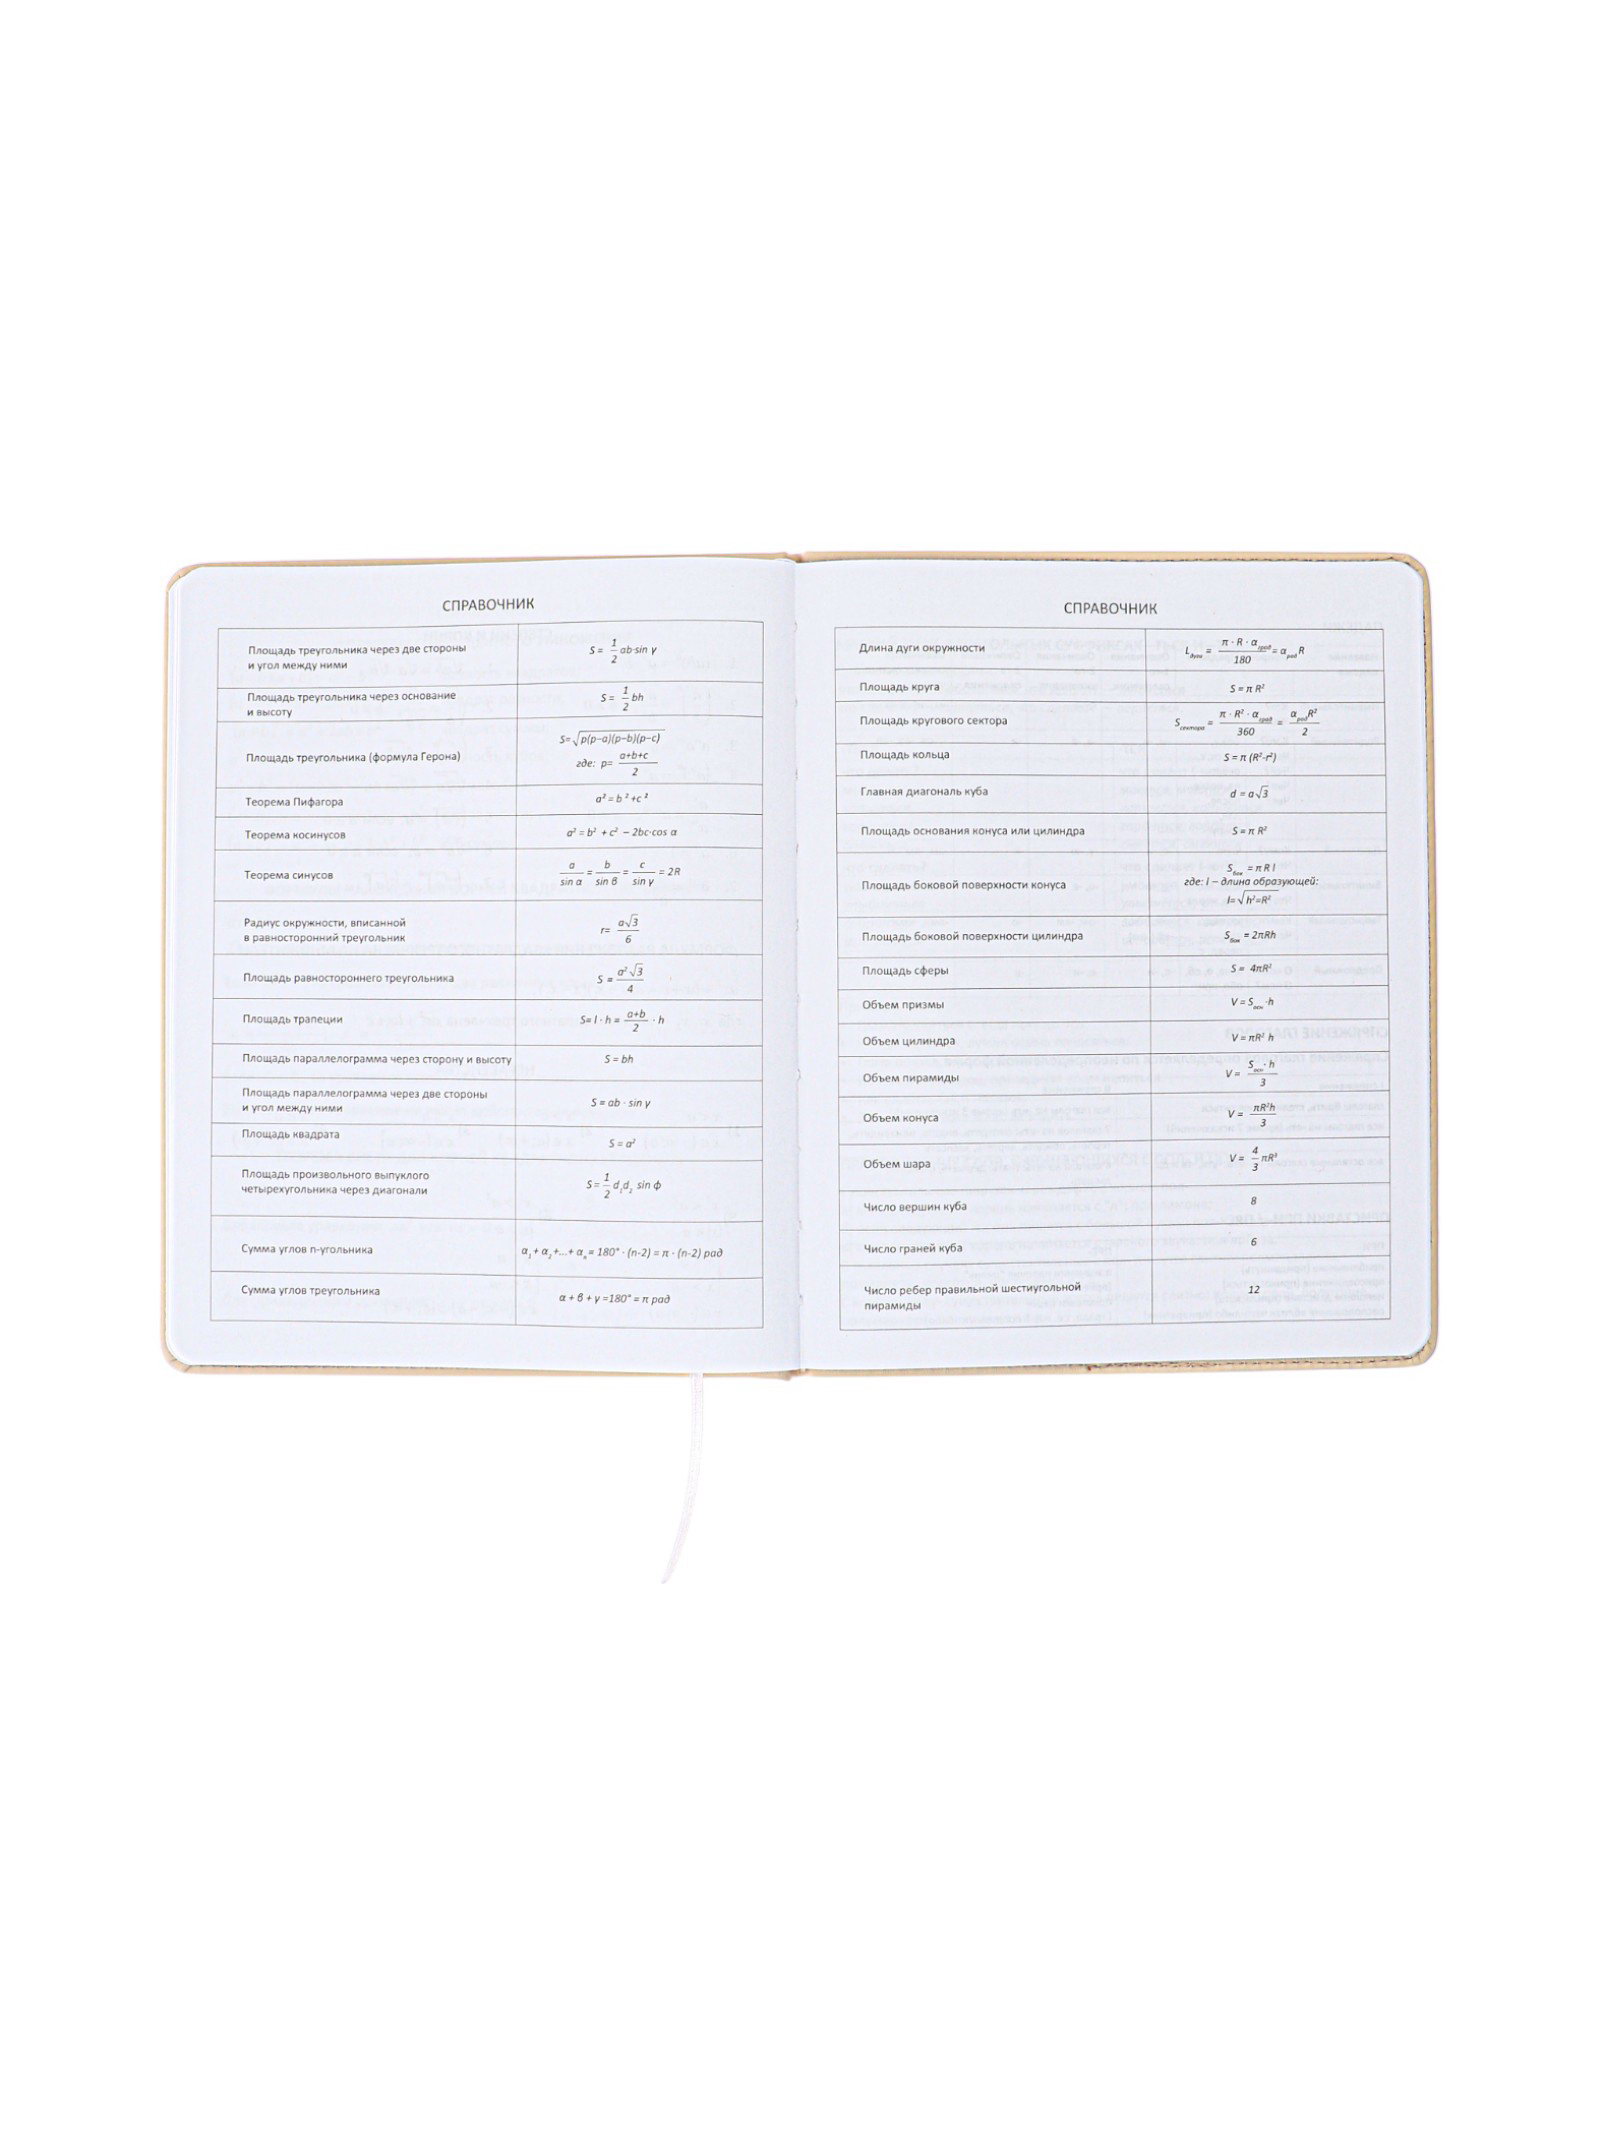 СПРАВОЧНИК
Площадь треугольника через две стороны
и угол между ними
S = 1/2 ab·sin γ
Площадь треугольника через основание
и высоту
S = 1/2 bh
Площадь треугольника (формула Герона)
S=√p(p−a)(p−b)(p−c)
где: p= a+b+c/2
Теорема Пифагора
a² = b² +c²
Теорема косинусов
a² = b² + c² − 2bc·cos α
Теорема синусов
a/sin α = b/sin β = c/sin γ = 2R
Радиус окружности, вписанной
в равносторонний треугольник
r= a√3/6
Площадь равностороннего треугольника
S = a²√3/4
Площадь трапеции
S= l · h = a+b/2 · h
Площадь параллелограмма через сторону и высоту
S = bh
Площадь параллелограмма через две стороны
и угол между ними
S = ab · sin γ
Площадь квадрата
S = a²
Площадь произвольного выпуклого
четырехугольника через диагонали
S = 1/2 d₁d₂ sin ф
Сумма углов n-угольника
α₁ + α₂ +...+ αₙ = 180° · (n-2) = π · (n-2) рад
Сумма углов треугольника
α + β + γ =180° = π рад
СПРАВОЧНИК
Длина дуги окружности
L дуги = π · R · α град/180 = α рад R
Площадь круга
S = π R²
Площадь кругового сектора
S сектора = π · R² · α град/360 = α рад R²/2
Площадь кольца
S = π (R²-r²)
Главная диагональ куба
d = a√3
Площадь основания конуса или цилиндра
S = π R²
Площадь боковой поверхности конуса
S бок = π R l
где: l – длина образующей:
l=√h²=R²
Площадь боковой поверхности цилиндра
S бок = 2πRh
Площадь сферы
S = 4πR²
Объем призмы
V = S осн ·h
Объем цилиндра
V = πR² h
Объем пирамиды
V = S осн · h/3
Объем конуса
V = πR²h/3
Объем шара
V = 4/3 πR³
Число вершин куба
8
Число граней куба
6
Число ребер правильной шестиугольной
пирамиды
12